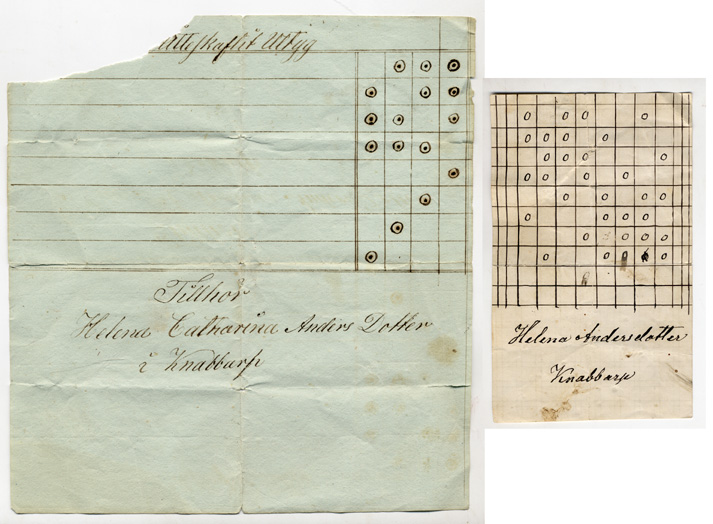 Tillhör
Helena Catharina Anders Dotter
i Knabbarp
Helena Andersdotter
Knabbarp